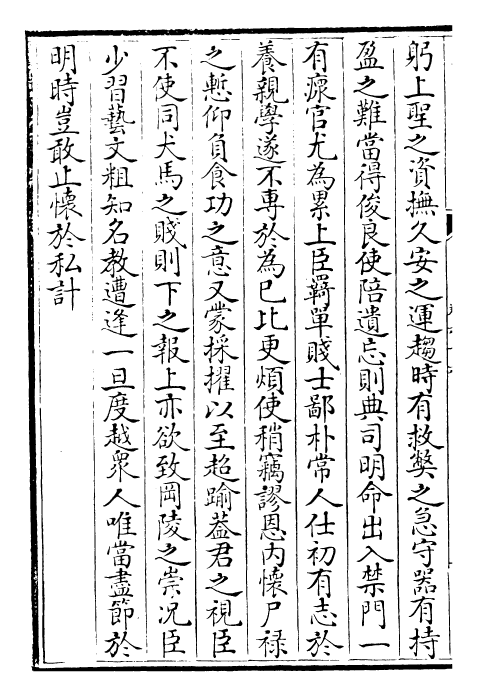 躬上聖之資撫久安之運趨時有救弊之急守器有持
盈之難當得俊良使陪遺忘則典司明命出入禁門一
有瘝官尤為累上臣羇單賤士鄙朴常人仕初有志於
養親學遂不專於為已比更煩使稍竊謬恩内懷尸祿
之慙仰負食功之意又蒙採擢以至超踰葢君之視臣
不使同犬馬之賤則下之報上亦欲致岡陵之崇况臣
少習藝文粗知名教遭逢一旦度越衆人唯當盡節於
明時豈敢止懷於私計